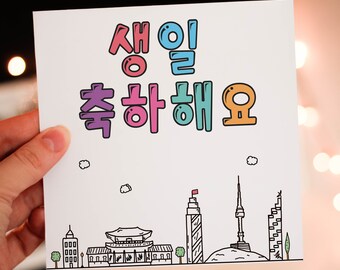 생일
축하해요